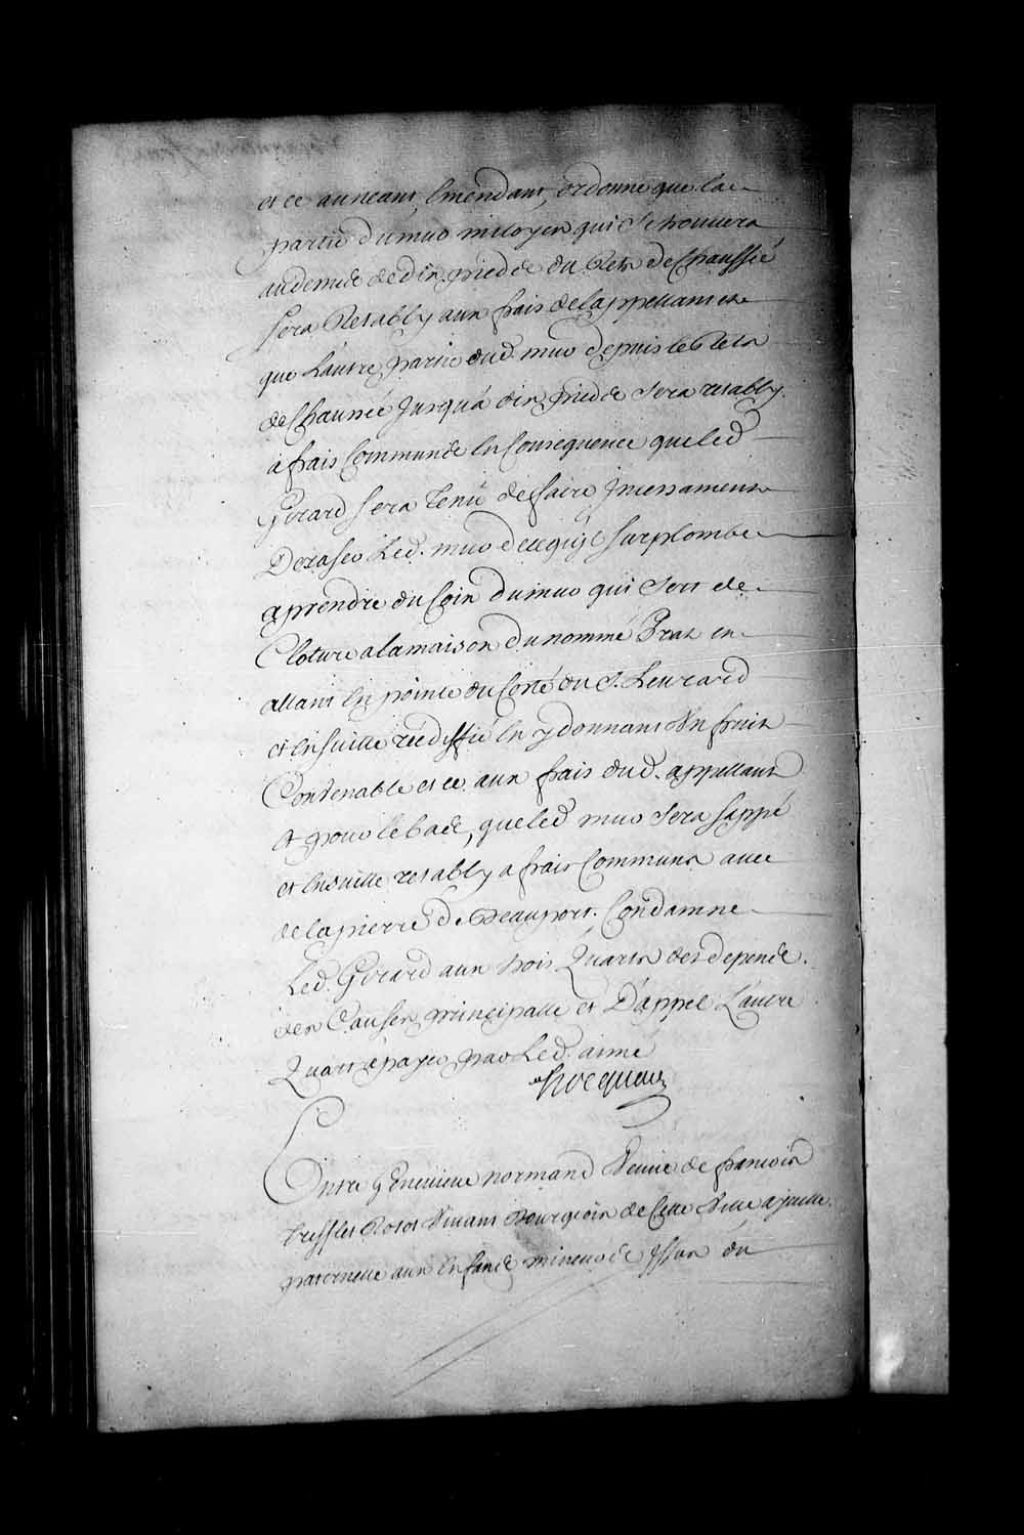 et ce au neant, Emendant, ordonne que la
partie du mur mitoyen qui se trouvera
au dessus de dix pieds du Retz de Chaussée
sera Retably aux frais de lappellant et
que L'autre partie dud. mur depuis le Retz
de Chaussée Jusqu'à dix pieds sera retably
à frais Communs En Consequence que led.
Girard sera Tenu de faire Incessamment
Deraser Led. mur de ce qu'il surplombe
aprendre du Coin du mur qui sert de
Cloture a la maison du nommé Prat en
allant En pointe du Costé du S. Leurard
et Ensuitte réédiffié En y donnant Un fruit
Convenable et ce aux frais dud. appellant
Et pour le bas, que led mur sera sappé
et Ensuitte retably a frais Communs avec
de la pierre de Beauport. Condamne
Led. Girard aux trois Quarts des depens
des Causes principalle et D'appel L'autre
Quart à payer par Led. aimé
Hocquart
Entre Genevieve normand Veuve de francois
treffles Rotot Vivant Bourgeois de Cette Ville ayeulle
paternelle aux Enfans mineurs de Issus du